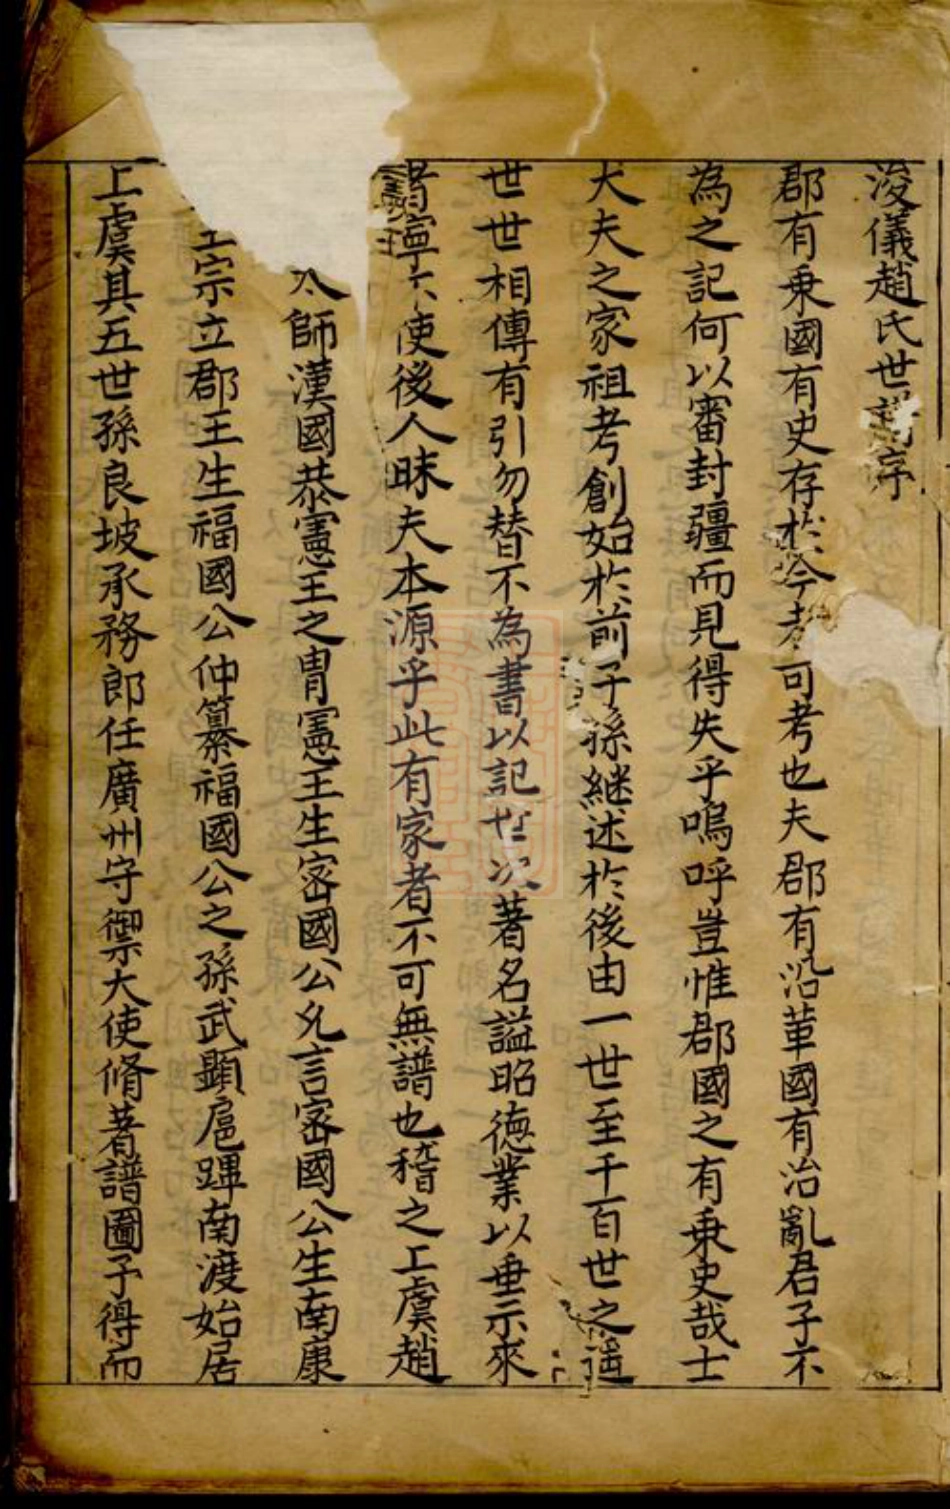 浚儀趙氏世譜序
郡有乗國有史存於今者可考也夫郡有沿革國有治亂君子不
為之記何以審封疆而見得失乎嗚呼豈惟郡國之有乗史哉士
大夫之家祖考創始於前子孫継述於後由一世至千百世之遥
世世相傳有引勿替不為書以記世次著名謚昭徳業以垂示來
者寧不使後人昧夫本源乎此有家者不可無譜也稽之上虞趙
太師漢國恭憲王之胄憲王生密國公允言密國公生南康
宗立郡王生福國公仲纂福國公之孫武顯扈蹕南渡始居
上虞其五世孫良坡承務郎任廣州守禦大使脩著譜圖予得而